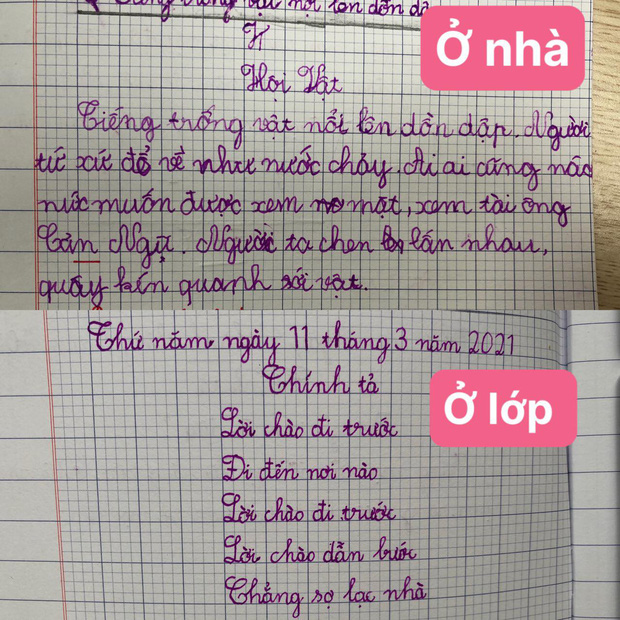 Tiếng trống vật nổi lên dồn dậ
Ở nhà
H
Hội Vật
Tiếng trống vật nổi lên dồn dập. Người
tứ xứ đổ về như nước chảy. Ai ai cũng náo
nức muốn được xem mặt, xem tài ông
Cản Ngũ. Người ta chen lấn nhau,
quây kín quanh sới vật.
Thứ năm ngày 11 tháng 3 năm 2021
Chính tả
Ở lớp
Lời chào đi trước
Đi đến nơi nào
Lời chào đi trước
Lời chào dẫn bước
Chẳng sợ lạc nhà